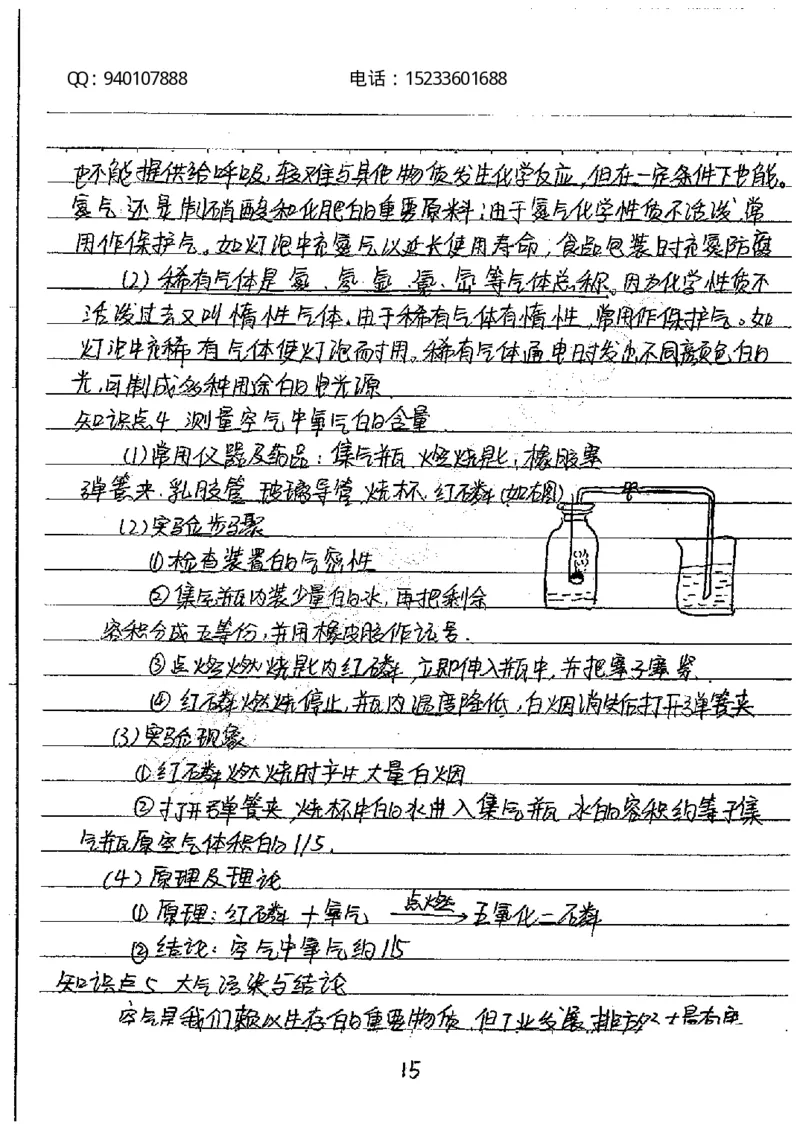 QQ：940107888 电话：15233601688
也不能提供给呼吸，较难与其他物质发生化学反应，但在一定条件下也能。
氮气还是制硝酸和化肥的重要原料；由于氮气化学性质不活泼，常
用作保护气。如灯泡中充氮气以延长使用寿命，食品包装时充氮防腐
(2)稀有气体是氦、氖、氩、氪、氙等气体总称。因为化学性质不
活泼过去又叫惰性气体。由于稀有气体有惰性，常用作保护气。如
灯泡中充稀有气体使灯泡耐用。稀有气体通电时发出不同颜色的
光，可制成多种用途的电光源
知识点4 测量空气中氧气的含量
(1)常用仪器及药品：集气瓶、燃烧匙、橡胶塞
弹簧夹、乳胶管、玻璃导管、烧杯、红磷(如右图)
(2)实验步骤
①检查装置的气密性
②集气瓶内装少量的水，再把剩余
容积分成五等份，并用橡皮胶作记号.
③点燃燃烧匙内红磷，立即伸入瓶中，并把塞子塞紧
④红磷燃烧停止，瓶内温度降低，白烟消失后打开弹簧夹
(3)实验现象
①红磷燃烧时产生大量白烟
②打开弹簧夹，烧杯中的水由入集气瓶，水的容积约等于集
气瓶原空气体积的1/5.
(4)原理及理论
①原理：红磷+氧气 点燃→ 五氧化二磷
②结论：空气中氧气约1/5
知识点5 大气污染与结论
空气是我们赖以生存的重要物质，但工业发展，排放
15